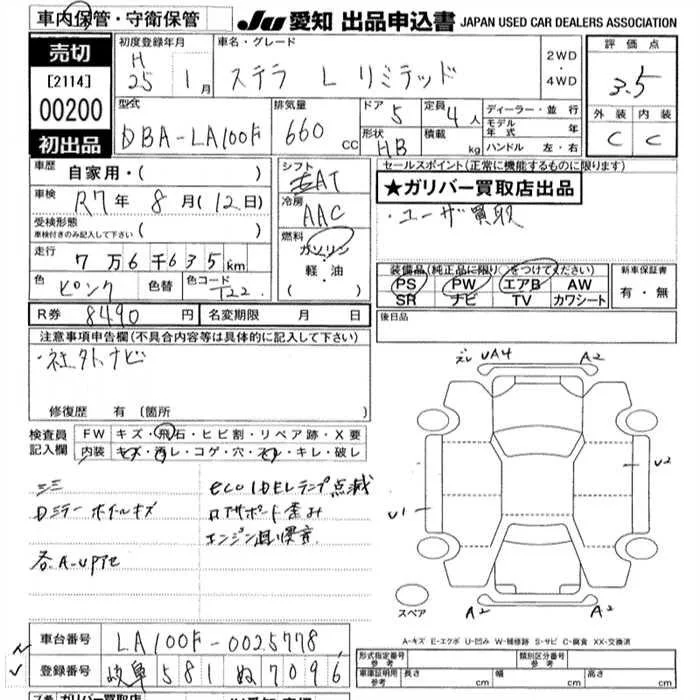 車内保管・守衛保管 JU 愛知 出品申込書 JAPAN USED CAR DEALERS ASSOCIATION
売切
[2114]
00200
初出品
初度登録年月 車名・グレード
H 25年 1月 ステラ L リミテッド 2WD・4WD
評価点 3.5
外装 内装
C C
型式 排気量 ドア 定員 ディーラー・並行
DBA-LA100F 660cc 5 4人 モデル年式 年
形状 HB 積載 kg ハンドル 左・右
車歴 自家用・( )
車検 R7年 8月(12日)
受検形態 車検付きのみ記入して下さい ( )
走行 7万6千635km
色 ピンク 色替 色コード T22
シフト AT
冷房 AAC
燃料 ガソリン・軽油・( )
セールスポイント(正常に機能するものに限ります)
★ガリバー買取店出品
・ユーザ買取
装備品(純正品に限り○をつけてください) 新車保証書
PS PW エアB AW 有・無
SR ナビ TV カワシート
R券 8490円 名変期限 月 日
後日品
注意事項申告欄(不具合内容等は具体的に記入して下さい)
・社外ナビ
修復歴 有(箇所 )
検査員記入欄 FW キズ・飛石・ヒビ割・リペア跡・X要
内装 キズ・汚レ・コゲ・穴・スレ・キレ・破レ
eco IDLEランプ点滅
Dミラー ホイールキズ ロアサポート歪み
各A-UPアセ
UA4 A2
U2
U1
A2 A2
スペア
A-キズ E-エクボ U-凹み W-補修跡 S-サビ C-腐食 XX-交換済
車台番号 LA100F-0025778
登録番号 岐阜 581 ぬ 7096
形式指定番号 参考 類別区分番号 参考
車庫証明用 参考 長さ cm 幅 cm 高さ cm
ガリバー買取店